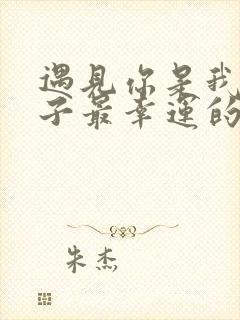 遇見你是我
子最幸運的
朱杰